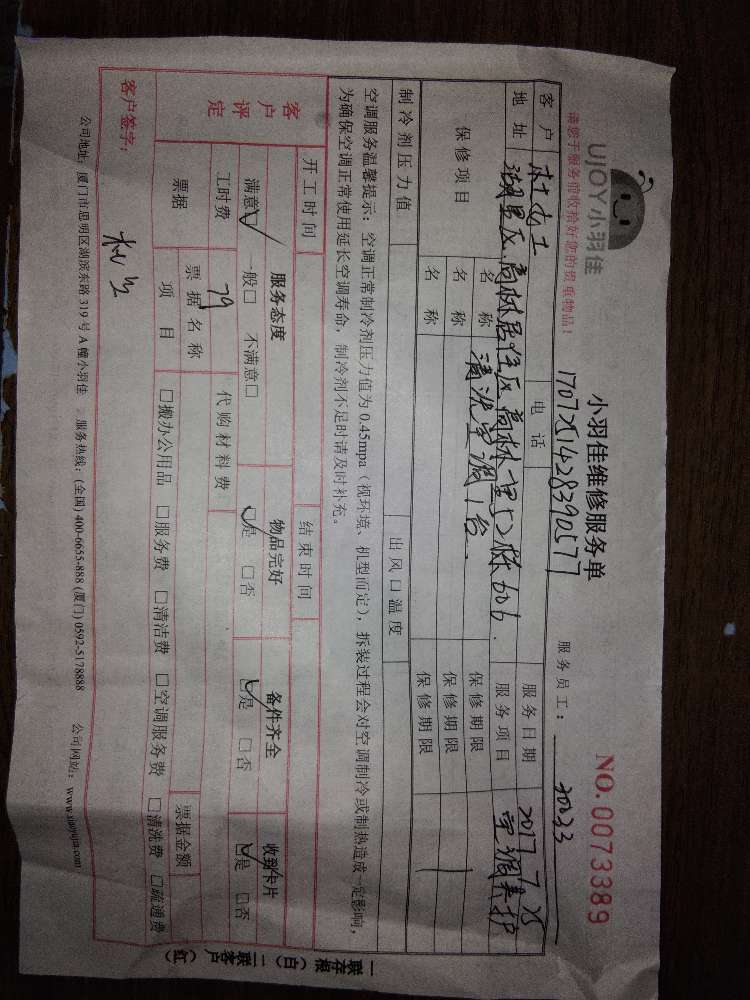 UJOY小羽佳
请您于服务前收拾好您的贵重物品!
小羽佳维修服务单
NO. 0073389
1707251428390577
服务员工: 30233
客户 电话 服务日期 2017 7 25
地址 湖里区高林居住区高林一里 栋606. 服务项目 空调养护
保修项目 名称 清洗空调1台. 保修期限
名称 保修期限
名称 保修期限
制冷剂压力值 出风口温度
空调服务温馨提示: 空调正常制冷剂压力值为0.45mpa (视环境、机型而定), 拆装过程会对空调制冷或制热造成一定影响,
为确保空调正常使用延长空调寿命, 制冷剂不足时请及时补充。
开工时间 结束时间
客户评定 服务态度 物品完好 备件齐全 收到卡片
满意☑ 一般□ 不满意□ ☑是 □否 ☑是 □否 ☑是 □否
工时费 79 代购材料费
票据 票据名称 票据金额
项目 □搬办公用品 □服务费 □清洁费 □空调服务费 □清洗费 □疏通费
客户签字:
公司地址: 厦门市思明区湖滨东路319号A幢小羽佳 服务热线: (全国) 400-6655-888 (厦门) 0592-5178888 公司网站: www.xiaoyujia.com
一联存根 (白) 二联客户 (红)